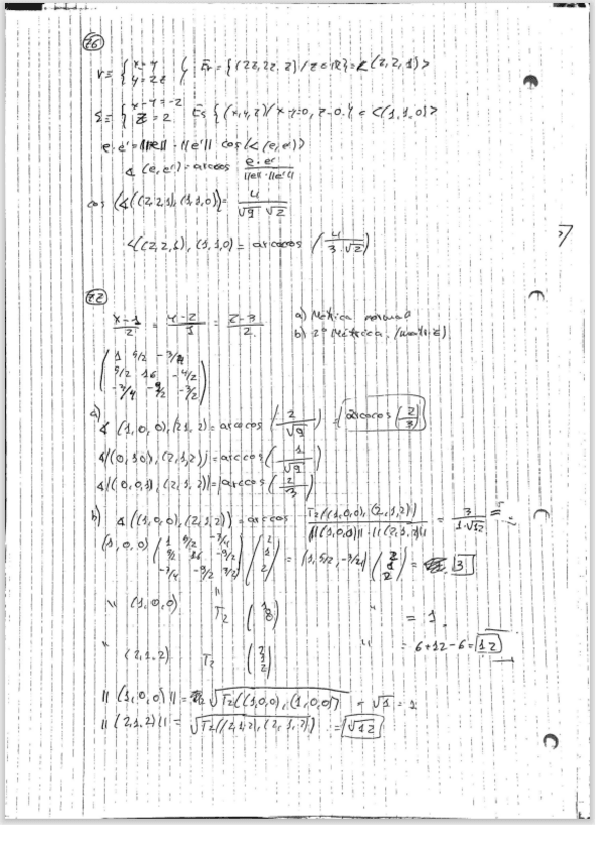 76
r ≡ { x = y
y = 2z } Er = { (2z, 2z, z) / z ∈ R } = < (2, 2, 1) >
s ≡ { x - y = -2
z = 2 Es { (x, y, z) / x - y = 0, z = 0 } = < (1, 1, 0) >
e · e' = ||e|| · ||e'|| cos (∢ (e, e'))
∢ (e, e') = arcos e · e' / ||e|| · ||e'||
cos (∢((2,2,1), (1,1,0)) = 4 / √9 √2
∢(2,2,1), (1,1,0) = arcocos ( 4 / 3·√2 )
77
x-1 / 2 = y-2 / 1 = z-3 / 2 a) Métrica normal
b) 2º Métrica. (matriz)
( 1 5/2 -3/4
5/2 16 -9/2
-3/4 -9/2 -3/2 )
a)
∢ (1,0,0), (2,1,2) = arcocos ( 2 / √9 ) = arcocos ( 2 / 3 )
∢((0,1,0), (2,1,2)) = arccos ( 1 / √9 )
∢((0,0,1), (2,1,2)) = arccos ( 2 / 3 )
b) ∢((1,0,0), (2,1,2)) = arccos T2((1,0,0), (2,1,2)) / ||(1,0,0)|| · ||(2,1,2)|| = 3 / 1·√12 =
(1,0,0) ( 1 5/2 -3/4
5/2 16 -9/2
-3/4 -9/2 3/2 ) ( 2
1
2 ) = (1, 5/2, -3/4) ( 2
1
2 ) = 3
" (1,0,0) T2 ( 1
0
0 ) " = 1.
" (2,1,2) T2 ( 2
1
2 ) " = 6+12-6 = 12
|| (1,0,0) || = √T2((1,0,0), (1,0,0)) = √1 = 1
|| (2,1,2) || = √T2((2,1,2), (2,1,2)) = √12